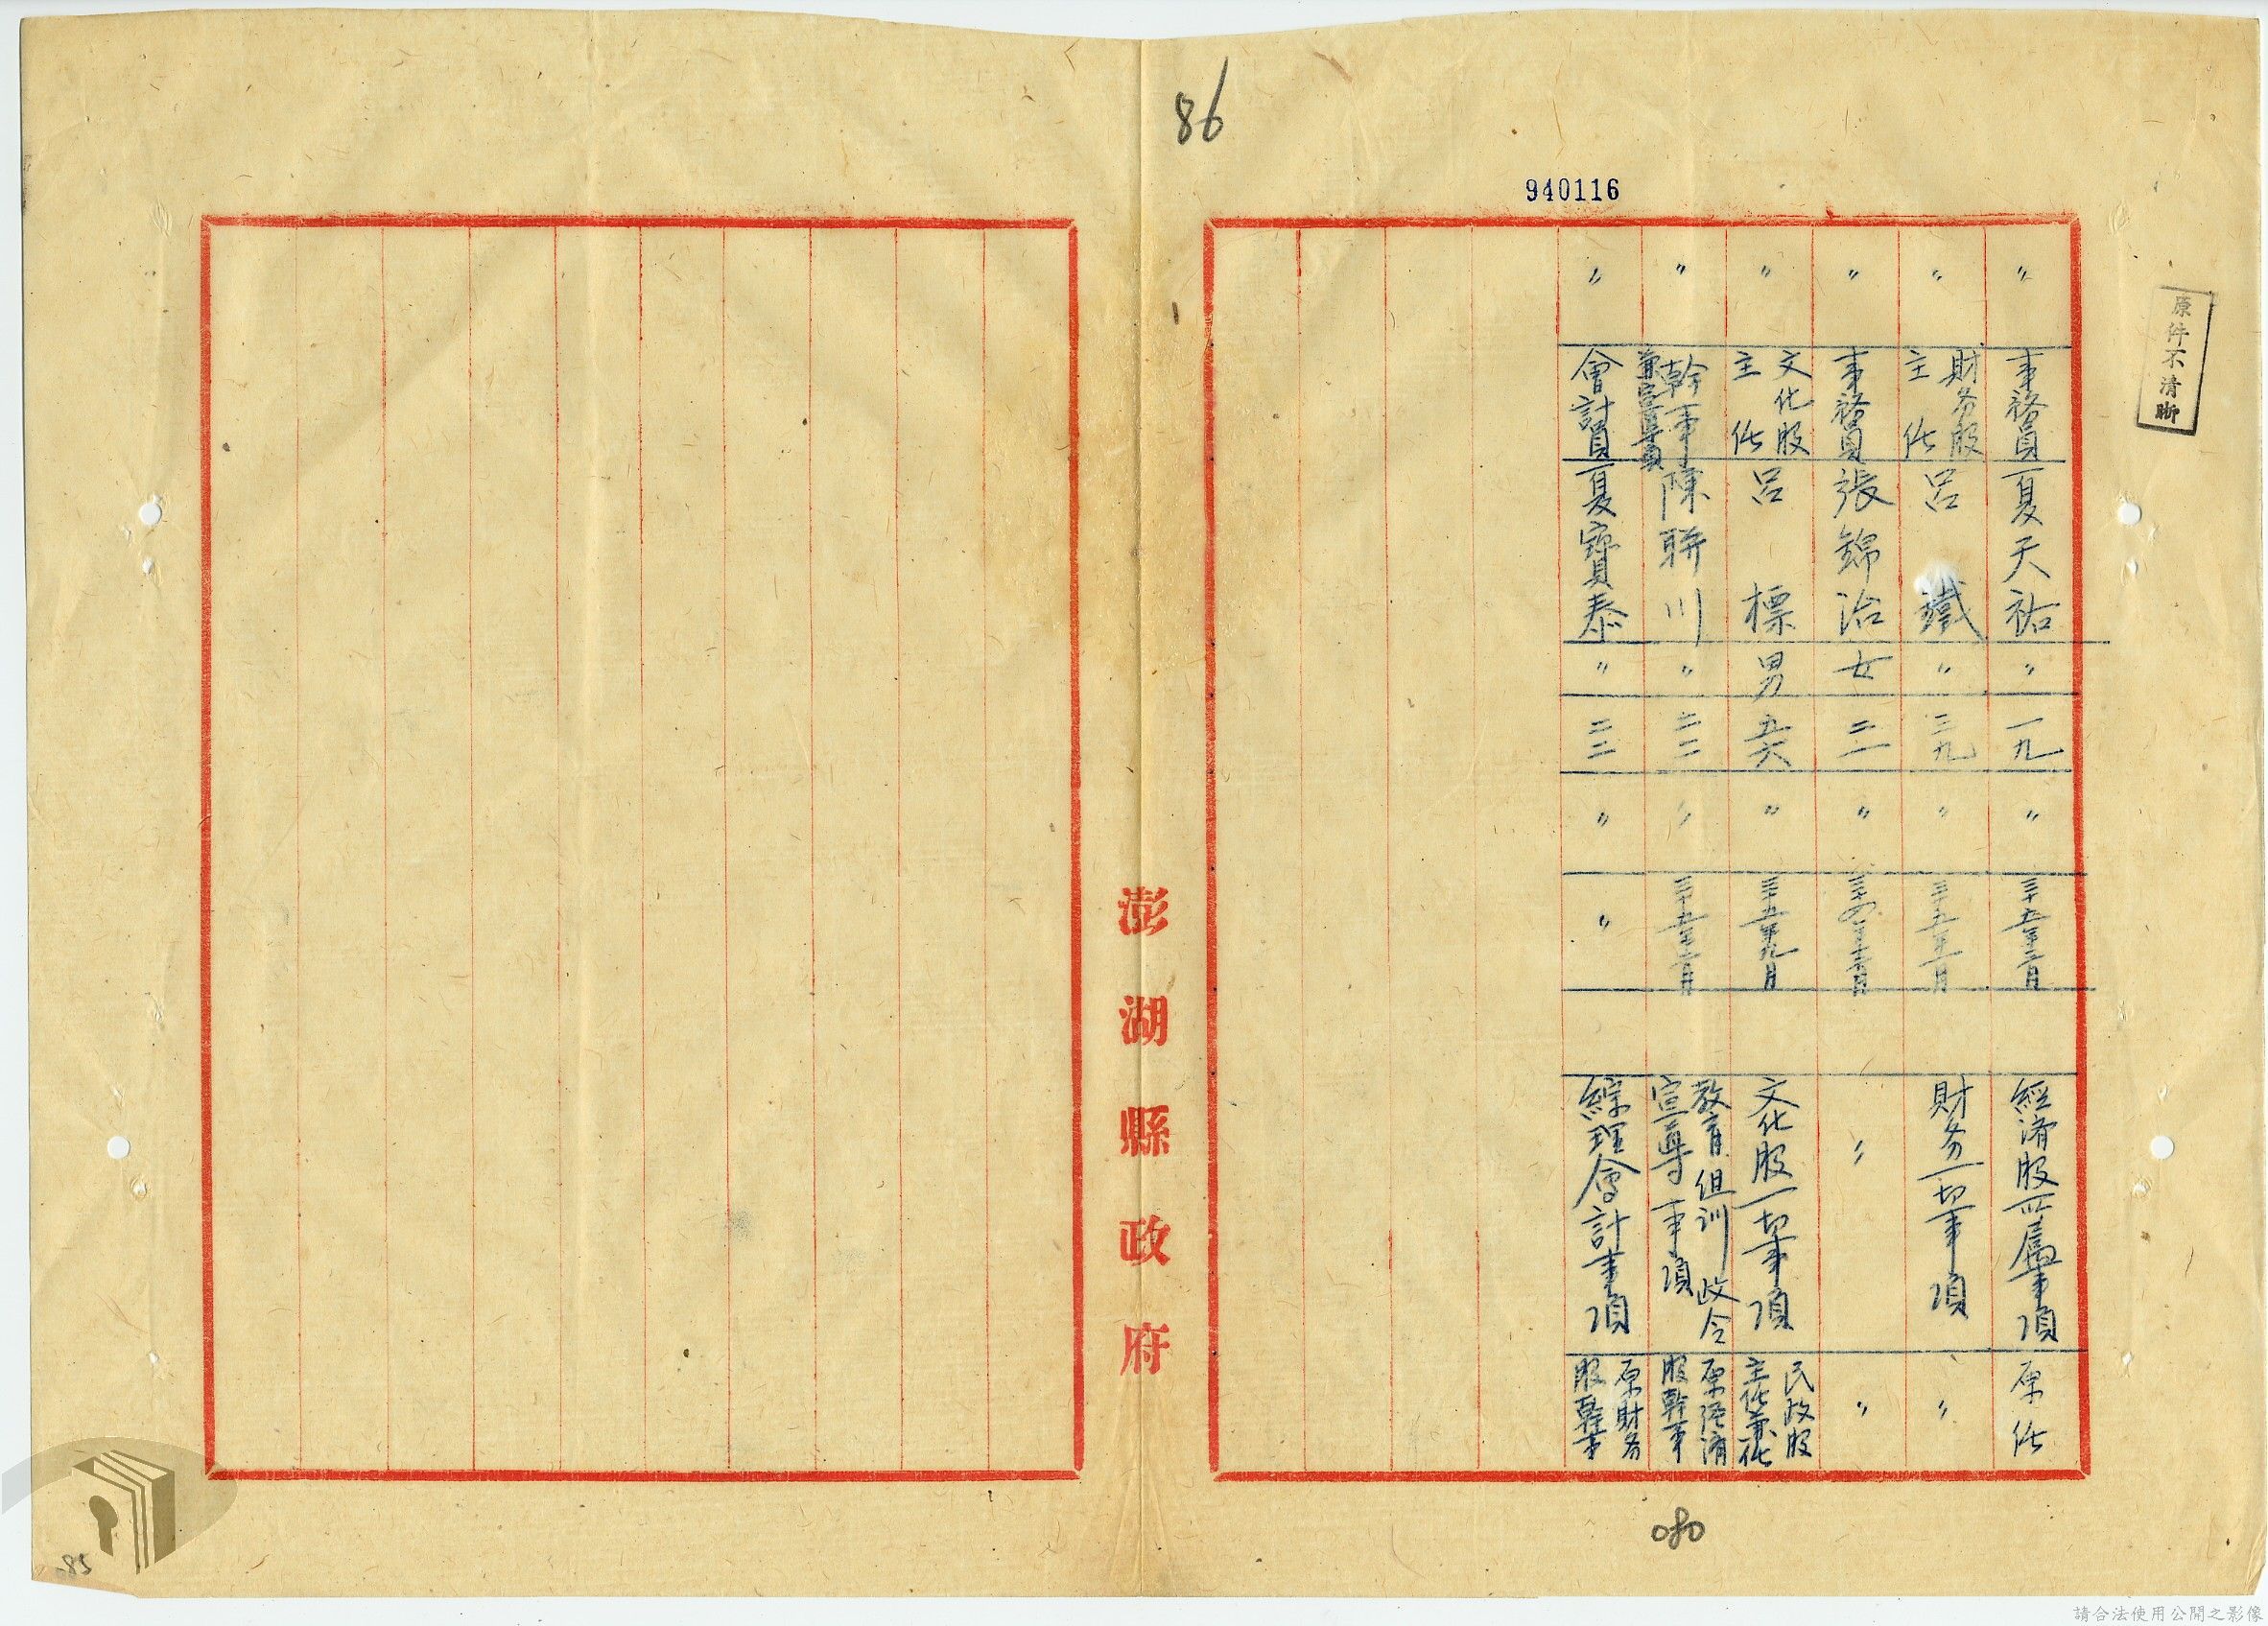 86
940116
原件不清晰
〃 事務員 夏天祐 〃 一九 〃 三十五年三月 經濟股所屬事項 原任
〃 財务股主任 呂鐵 〃 三九 〃 三十五年一月 財务一切事項 〃
〃 事務員 張錦治 女 二一 〃 〃 〃
〃 文化股主任 呂標 男 五六 〃 三十五年九月 文化股一切事項 民政股主任兼任
〃 幹事兼宣導員 陳聯川 〃 二二 〃 教育组训政令宣導事項 原經濟股幹事
〃 會計員 夏寶泰 〃 二二 〃 〃 綜理會計事項 原財务股幹事
澎湖縣政府
080
85
請合法使用公開之影像